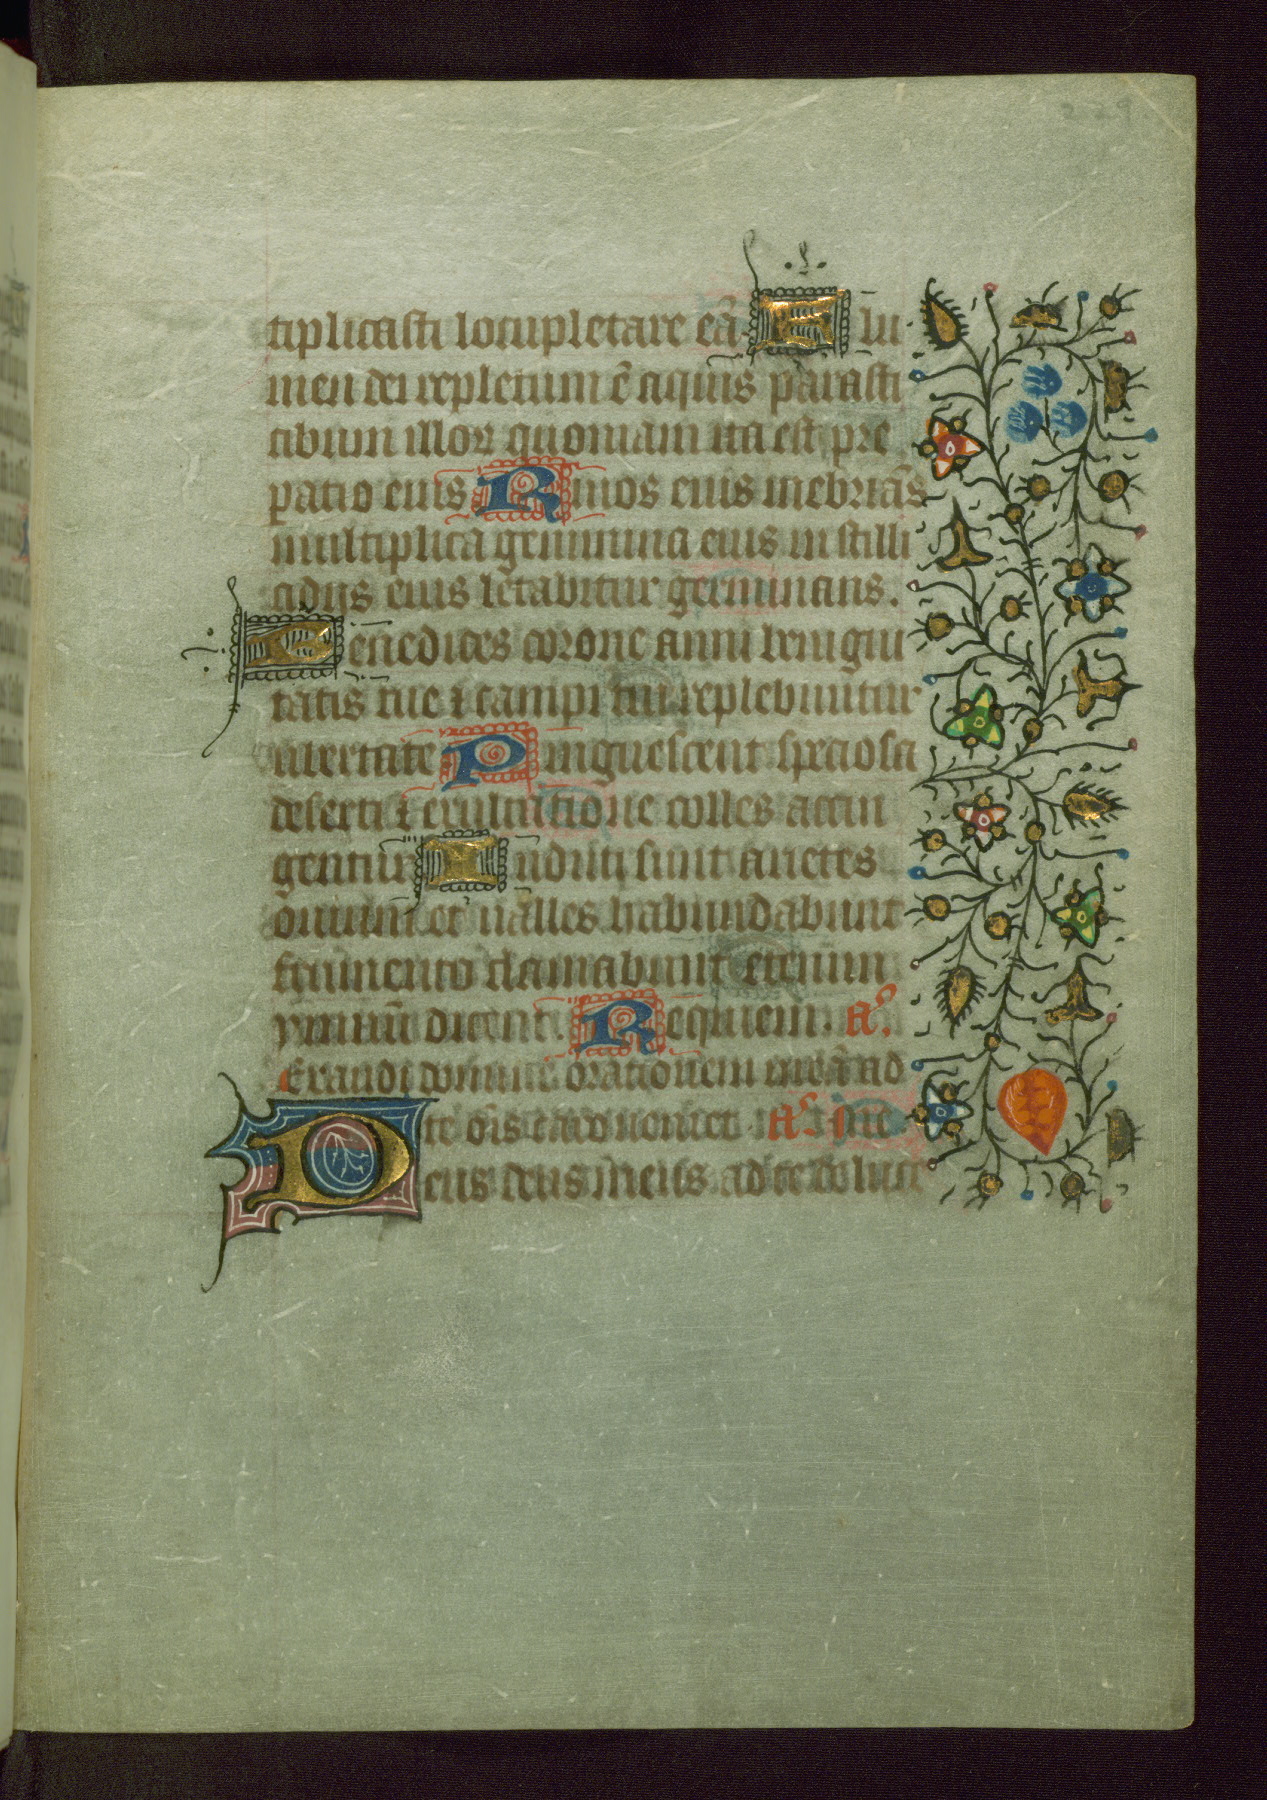 tiplicasti locupletare eā. Flu
men dei repletum ē aquis parasti
cibum illoꝝ quoniam ita est pre
patio eius Riuos eius inebriās
multiplica genimina eius in stilli
cidijs eius letabitur germinans.
Benedices corone anni benigni
tatis tue ⁊ campi tui replebuntur
ubertate Pinguescent speciosa
deserti ⁊ exultatione colles accin
gentur Induti sunt arietes
ouium et ualles habundabunt
frumento clamabunt etenim
ymnum dicent. Requiem. aº.
Exaudi domine orationem meā ad
te oīs caro ueniet. aº. me
Deus deus meus ad te de luce